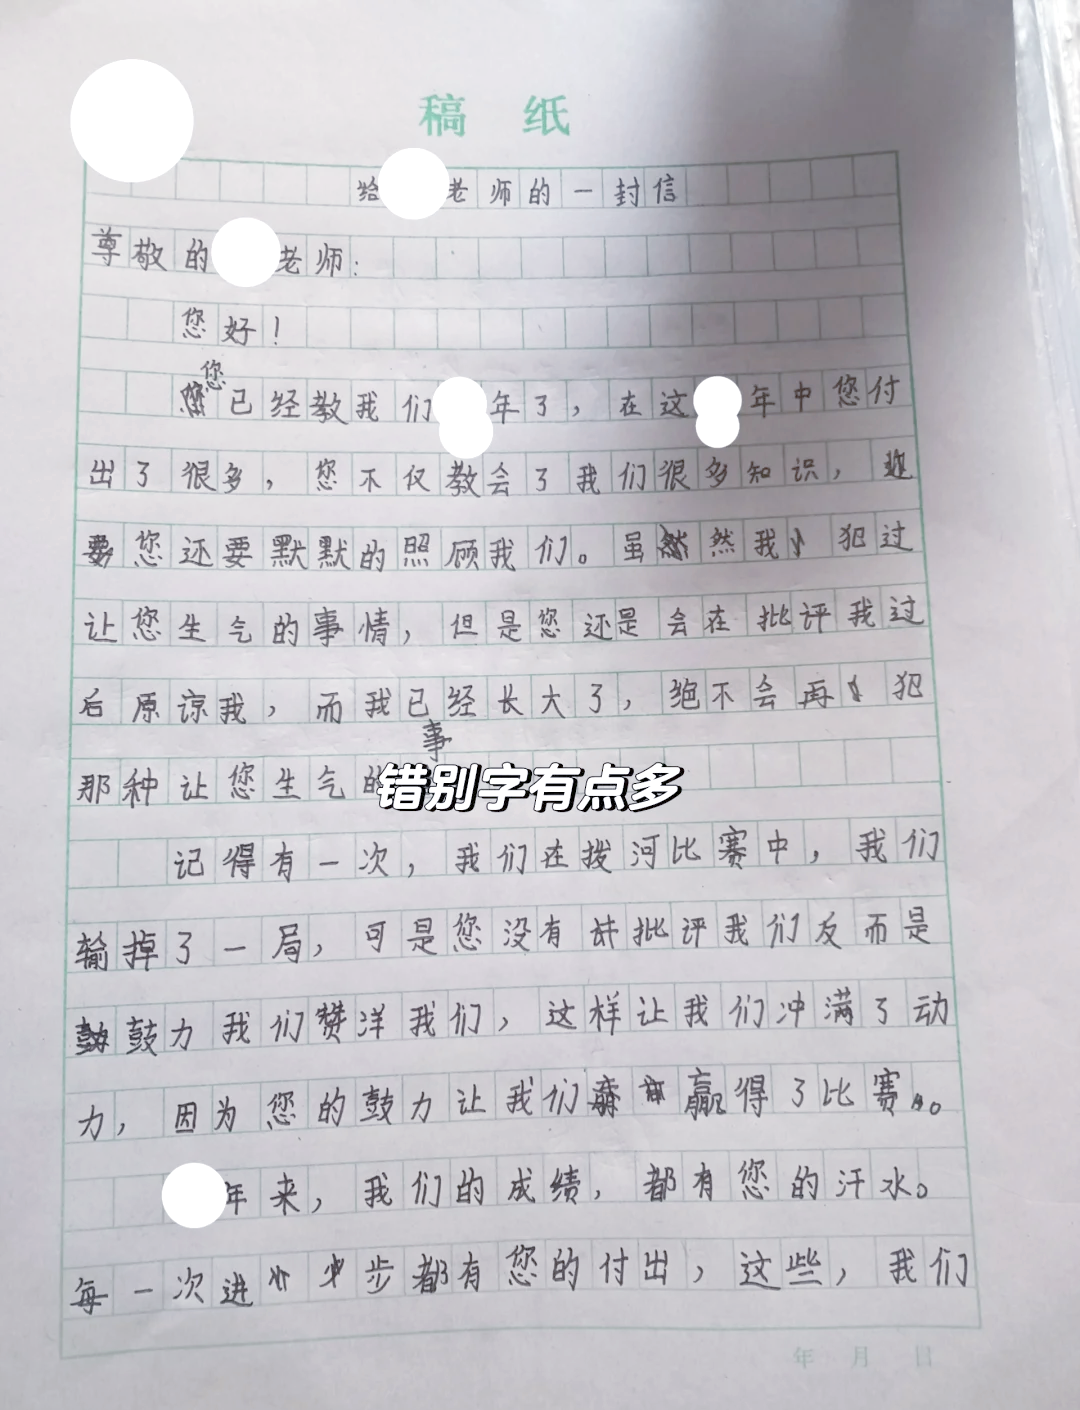 稿 纸
给 老师的一封信
尊敬的 老师:
您好!
您
已经教我们 年了,在这 年中您付
出了很多,您不仅教会了我们很多知识,
您还要默默的照顾我们。虽然我 犯过
让您生气的事情,但是您还是会在批评我过
后原谅我,而我已经长大了,绝不会再 犯
事
那种让您生气的
错别字有点多
记得有一次,我们在拨河比赛中,我们
输掉了一局,可是您没有 批评我们反而是
鼓力我们赞洋我们,这样让我们冲满了动
力,因为您的鼓力让我们 赢得了比赛。
年来,我们的成绩,都有您的汗水。
每一次进 步都有您的付出,这些,我们
年 月 日